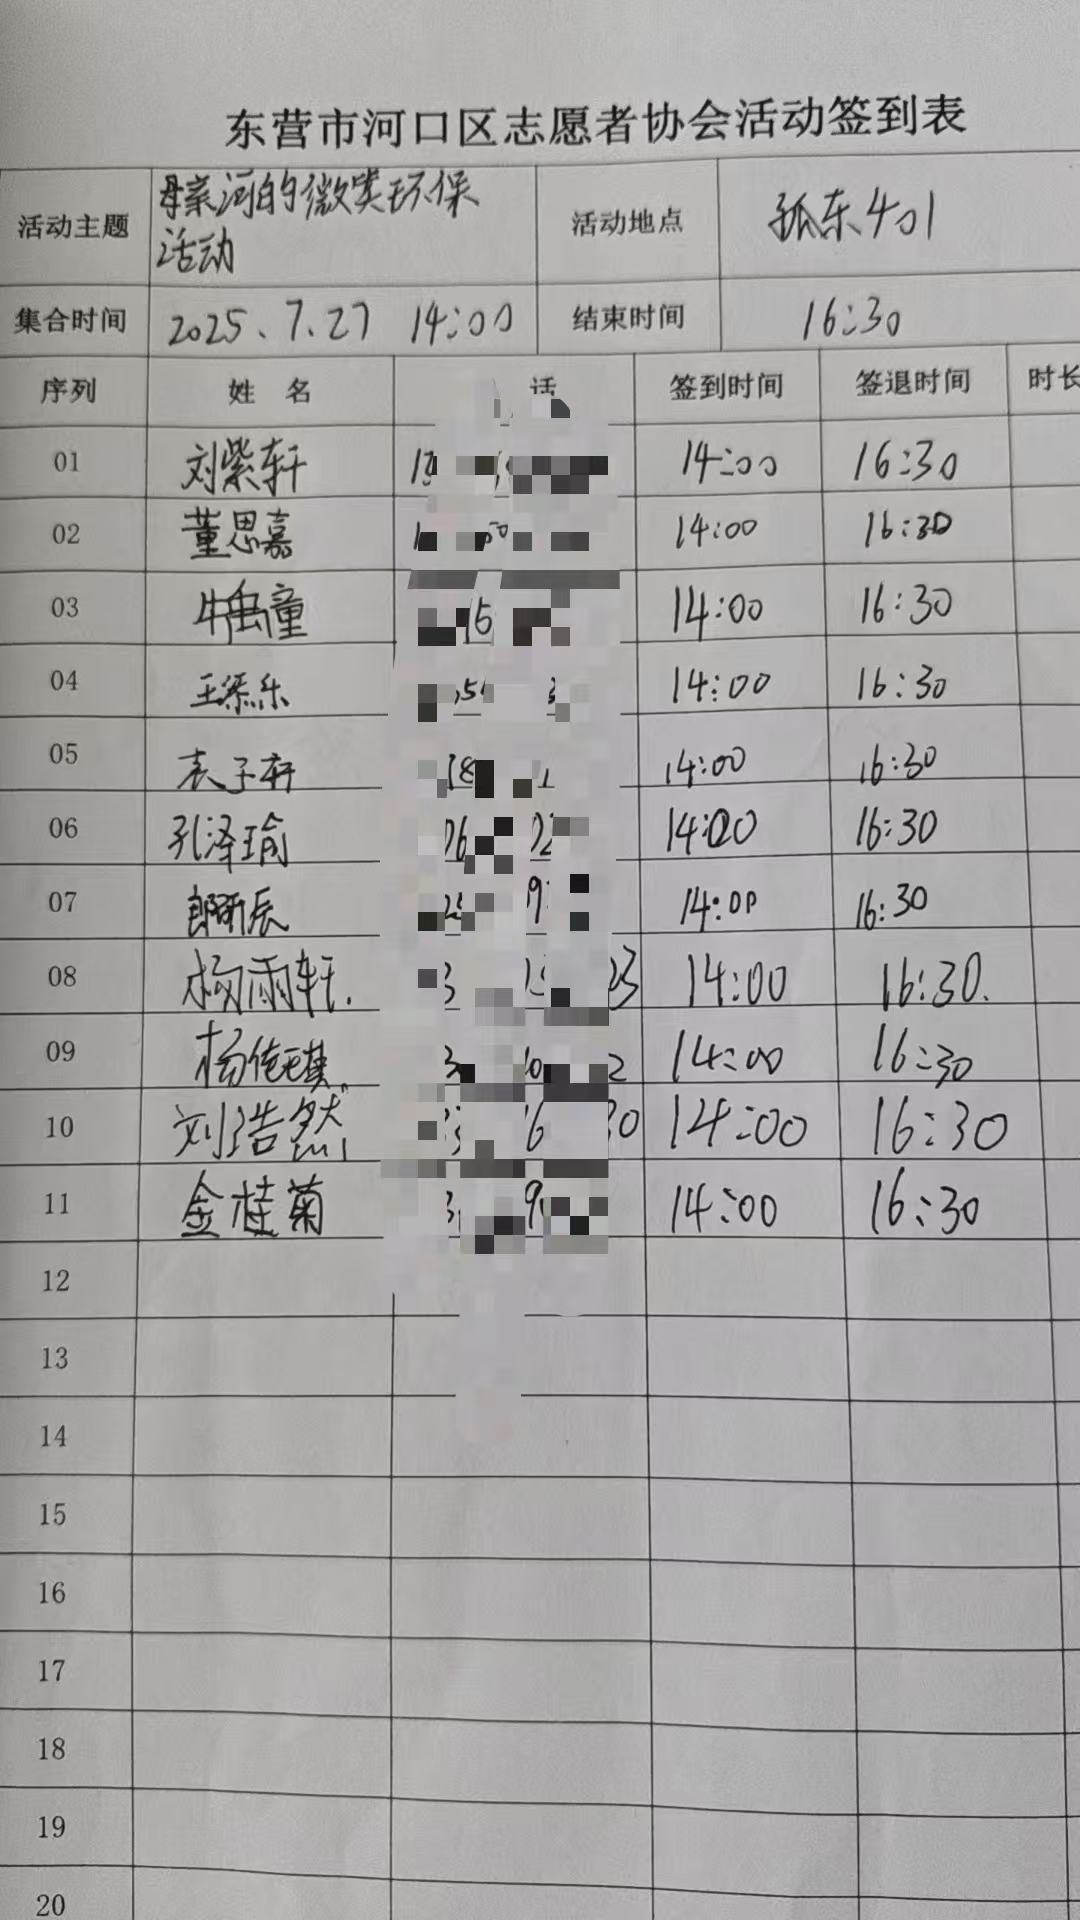 东营市河口区志愿者协会活动签到表
活动主题 母亲河的微笑环保活动 活动地点 孤东401
集合时间 2025.7.27 14:00 结束时间 16:30
序列 姓 名 话 签到时间 签退时间 时长
01 刘紫轩 14:00 16:30
02 董思嘉 14:00 16:30
03 牛禹童 14:00 16:30
04 王添乐 14:00 16:30
05 袁子轩 14:00 16:30
06 孔泽瑜 14:00 16:30
07 郎昕辰 14:00 16:30
08 杨雨轩. 14:00 16:30.
09 杨 琪 14:00 16:30
10 刘浩然 14:00 16:30
11 金桂菊 14:00 16:30
12
13
14
15
16
17
18
19
20